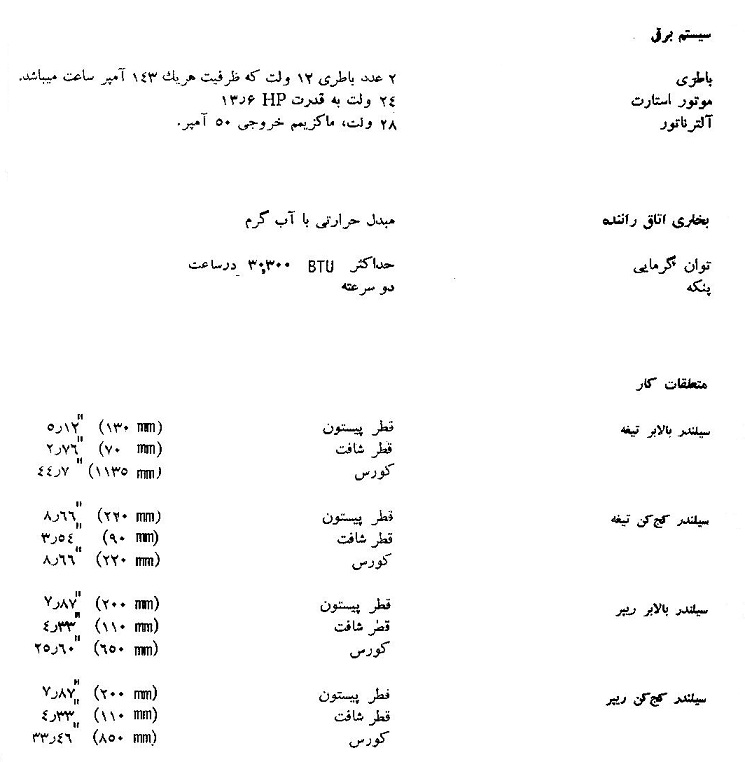 سیستم برقی
باطری ۲ عدد باطری ۱۲ ولت که ظرفیت هریك ۱٤۳ آمپر ساعت میباشد.
موتور استارت ۲٤ ولت به قدرت HP ۱۳٫۶
آلترناتور ۲۸ ولت، ماکزیمم خروجی ۵۰ آمپر.
بخاری اتاق راننده مبدل حرارتی با آب گرم
توان گرمایی حداکثر BTU ۳۰,۳۰۰ درساعت
پنکه دو سرعته
متعلقات کار
سیلندر بالابر تیغه قطر پیستون (۱۳۰ mm) ۵٫۱۲"
قطر شافت (۷۰ mm) ۲٫۷٦"
کورس (۱۱۳۵ mm) ٤٤٫۷"
سیلندر کج‌کن تیغه قطر پیستون (۲۲۰ mm) ۸٫٦٦"
قطر شافت (۹۰ mm) ۳٫۵٤"
کورس (۲۲۰ mm) ۸٫٦٦"
سیلندر بالابر ریپر قطر پیستون (۲۰۰ mm) ۷٫۸۷"
قطر شافت (۱۱۰ mm) ٤٫۳۳"
کورس (٦۵۰ mm) ۲۵٫٦۰"
سیلندر کج‌کن ریپر قطر پیستون (۲۰۰ mm) ۷٫۸۷"
قطر شافت (۱۱۰ mm) ٤٫۳۳"
کورس (۸۵۰ mm) ۳۳٫٤٦"